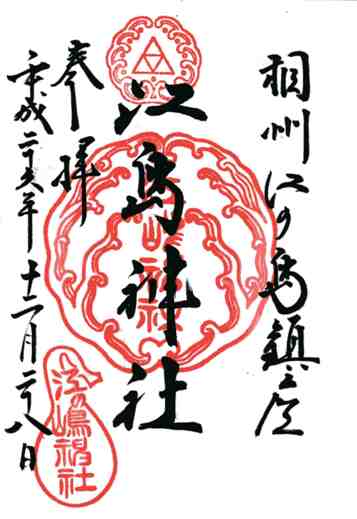 相州江の島鎮座
江島神社
奉拝
平成二十六年十二月二十八日
江嶋神社